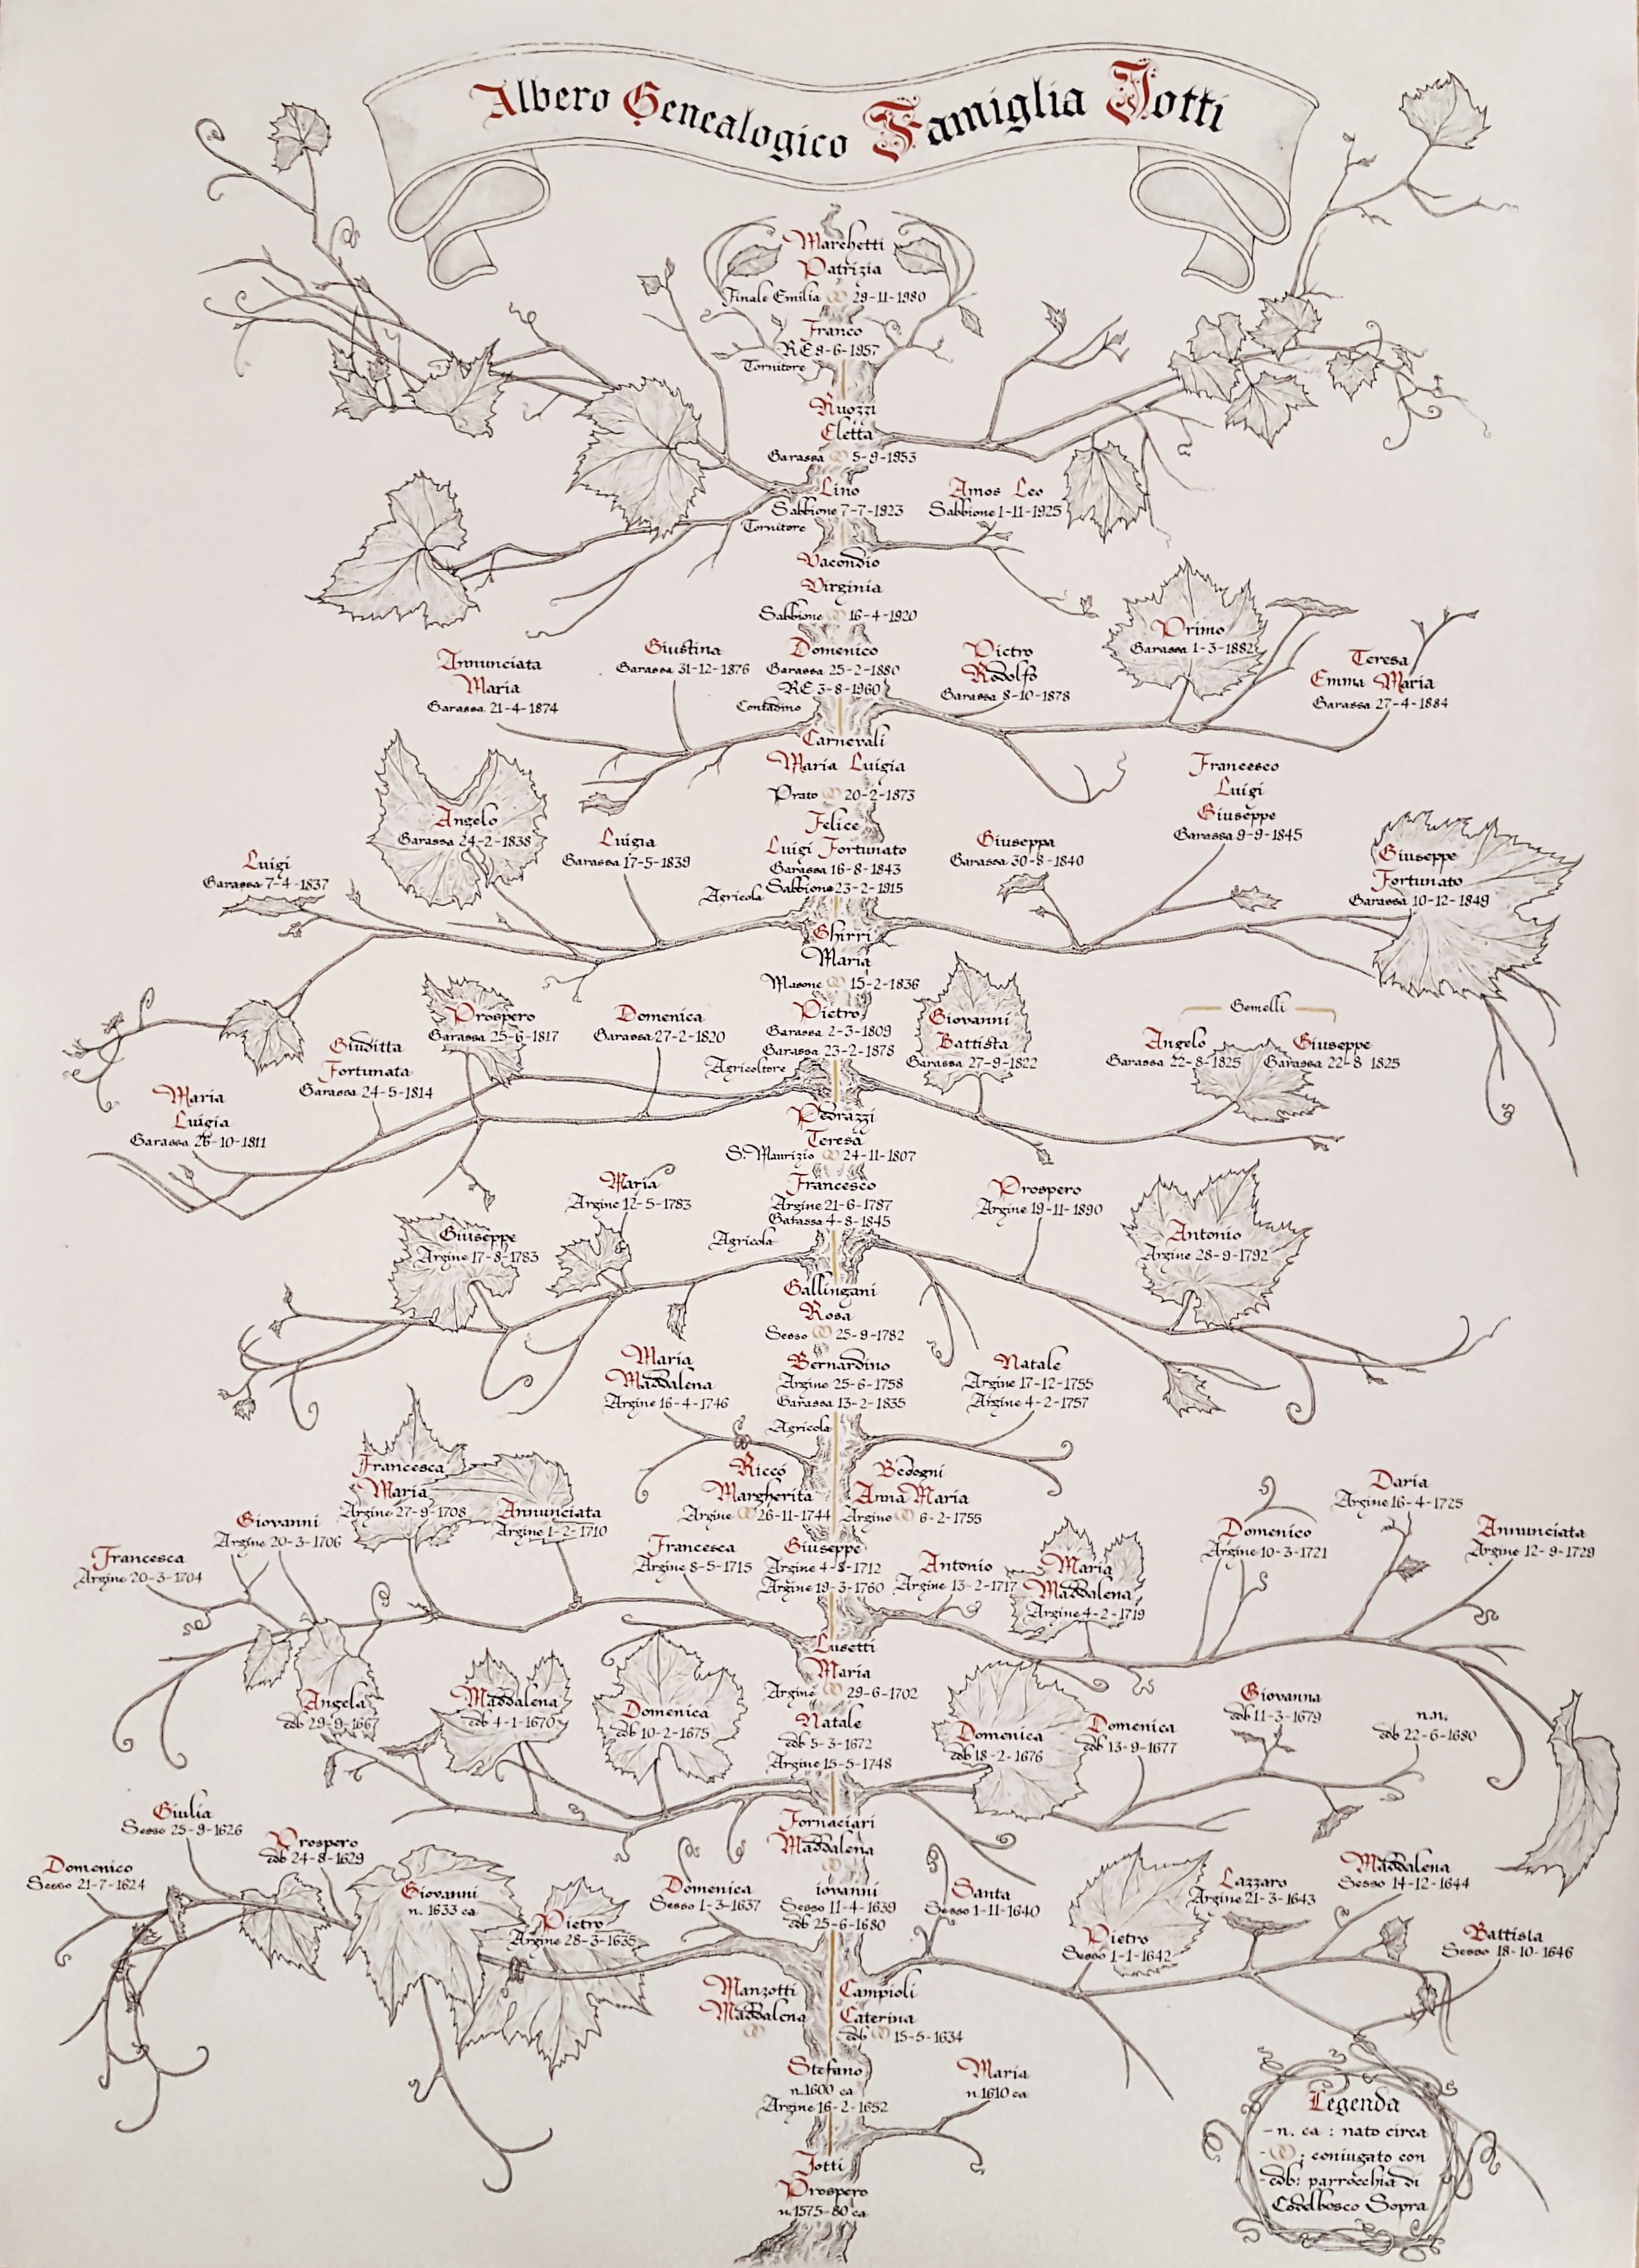 Albero Genealogico Famiglia Jotti
Marchetti
Patrizia
Finale Emilia 29-11-1980
Franco
RE 9-6-1957
Tornitore
Ruozzi
Eletta
Garassa 5-9-1953
Lino
Sabbione 7-7-1923
Tornitore
Amos Leo
Sabbione 1-11-1925
Vacondio
Virginia
Sabbione 16-4-1920
Annunciata
Maria
Garassa 21-4-1874
Giustina
Garassa 31-12-1876
Domenico
Garassa 25-2-1880
RE 3-8-1960
Contadino
Pietro
Rodolfo
Garassa 8-10-1878
Primo
Garassa 1-3-1882
Teresa
Emma Maria
Garassa 27-4-1884
Carnevali
Maria Luigia
Prato 20-2-1873
Luigi
Garassa 7-4-1837
Angelo
Garassa 24-2-1838
Luigia
Garassa 17-5-1839
Felice
Luigi Fortunato
Garassa 16-8-1843
Sabbione 23-2-1915
Agricola
Giuseppa
Garassa 30-8-1840
Francesco
Luigi
Giuseppe
Garassa 9-9-1845
Giuseppe
Fortunato
Garassa 10-12-1849
Ghirri
Maria
Masone 15-2-1836
Maria
Luigia
Garassa 26-10-1811
Giuditta
Fortunata
Garassa 24-5-1814
Prospero
Garassa 25-6-1817
Domenica
Garassa 27-2-1820
Pietro
Garassa 2-3-1809
Garassa 23-2-1878
Agricoltore
Giovanni
Battista
Garassa 27-9-1822
Gemelli
Angelo
Garassa 22-8-1825
Giuseppe
Garassa 22-8 1825
Pedrazzi
Teresa
S. Maurizio 24-11-1807
Giuseppe
Argine 17-8-1783
Maria
Argine 12-5-1783
Francesco
Argine 21-6-1787
Garassa 4-8-1845
Agricola
Prospero
Argine 19-11-1890
Antonio
Argine 28-9-1792
Gallingani
Rosa
Sesso 25-9-1782
Maria
Maddalena
Argine 16-4-1746
Bernardino
Argine 25-6-1758
Garassa 13-2-1835
Agricola
Natale
Argine 17-12-1755
Argine 4-2-1757
Riccó
Margherita
Argine 26-11-1744
Bedogni
Anna Maria
Argine 6-2-1755
Francesca
Argine 20-3-1704
Giovanni
Argine 20-3-1706
Francesca
Maria
Argine 27-9-1708
Annunciata
Argine 1-2-1710
Francesca
Argine 8-5-1715
Giuseppe
Argine 4-8-1712
Argine 19-3-1760
Antonio
Argine 13-2-1717
Maria
Maddalena
Argine 4-2-1719
Domenico
Argine 10-3-1721
Daria
Argine 16-4-1725
Annunciata
Argine 12-9-1729
Lusetti
Maria
Argine 29-6-1702
Angela
cdb 29-9-1667
Maddalena
cdb 4-1-1670
Domenica
cdb 10-2-1675
Natale
cdb 5-3-1672
Argine 15-5-1748
Domenica
cdb 18-2-1676
Domenica
cdb 13-9-1677
Giovanna
cdb 11-3-1679
n.n.
cdb 22-6-1680
Fornaciari
Maddalena
Domenico
Sesso 21-7-1624
Giulia
Sesso 25-9-1626
Prospero
cdb 24-8-1629
Giovanni
n. 1633 ca
Pietro
Argine 28-3-1635
Domenica
Sesso 1-3-1637
iovanni
Sesso 11-4-1639
cdb 25-6-1680
Santa
Sesso 1-11-1640
Pietro
Sesso 1-1-1642
Lazzaro
Argine 21-3-1643
Maddalena
Sesso 14-12-1644
Battista
Sesso 18-10-1646
Manzotti
Maddalena
Campioli
Caterina
cdb 15-5-1634
Stefano
n.1600 ca
Argine 16-2-1652
Maria
n.1610 ca
Jotti
Prospero
n.1575-80 ca
Legenda
- n. ca : nato circa
- : coniugato con
- cdb: parrocchia di
Codelbosco Sopra